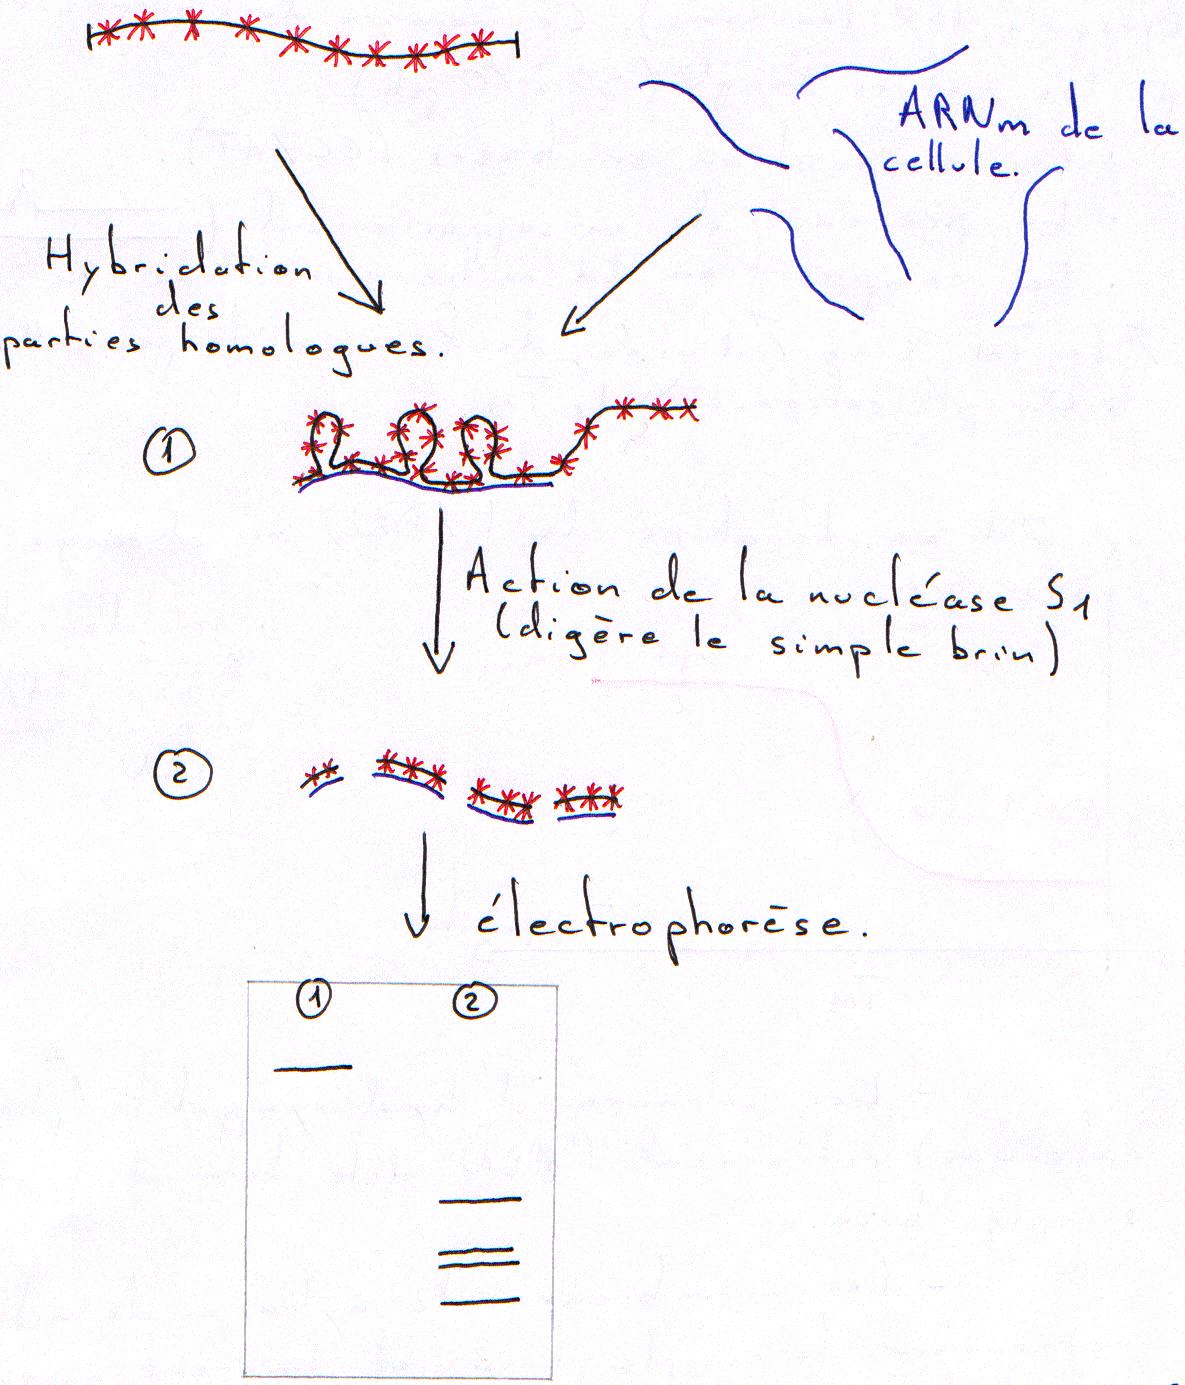 ARNm de la
cellule.
Hybridation
des
parties homologues.
1
Action de la nucléase S1
(digère le simple brin)
2
électrophorèse.
1 2